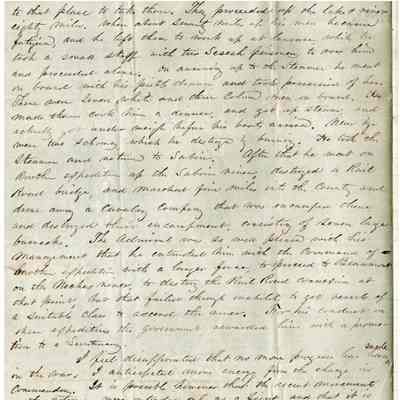 to that place to take them. They proceeded up the lake
eighty miles. When about seven miles up his men became
fatigued, and he left them to work up at leasure while he
took a small skiff with two Secesh prisoners to row him
and proceeded alone. On arriving up to the Steamer he went
on board with his pistol drawn and took possession of her.
There were seven white and three Colored men on board. He
made them cook him a dinner, and get up steam and
actually got under weigh before his boats arrived. Near by
were two schooners which he destroyed by burning. He took the
Steamer and returned to Sabine. After that he went on
another expedition up the Sabine river, destroyed a Rail
Road bridge, and marched five miles into the Country and
drove away a Cavalry Company that was encamped there
and destroyed their encampment, consisting of seven large
barracks. The Admiral was so well pleased with his
management that he entrusted him with the Command of
another expedition with a larger force, to proceed to Beaumont
on the Neches river, to destroy the Rail Road Connexion at
that point, but that failed through inability to get vessels of
a suitable class to ascend the river. For his conduct in
these expeditions the government rewarded him with a promo-
tion to a Lieutenancy.
I feel disappointed that no more progress has been made
in the war. I anticipated more energy from the change in
Commanders. It is possible however that the recent movements